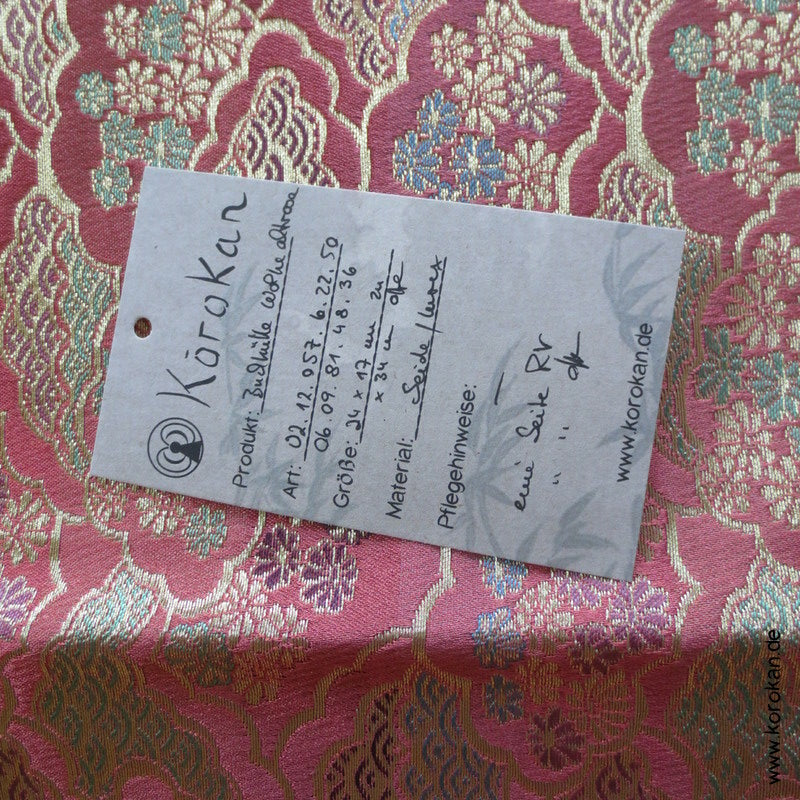 Kōrokan
Produkt: Buchhülle Wolke altrosa
Art: 02.12.057.6.22.50
06.09.81.48.36
Größe: 24 x 17 cm zu
x 34 cm offe
Material: Seide / Lurex
Pflegehinweise: —
eine Seite RV
" "
www.korokan.de
www.korokan.de